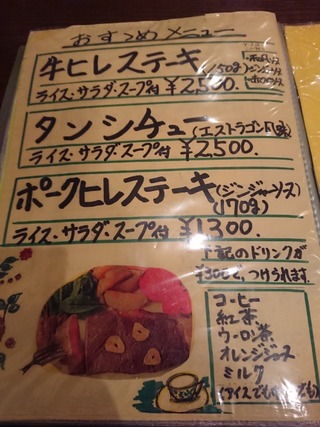 おすすめメニュー
牛ヒレステーキ(150g)
ライス・サラダ・スープ付 ¥2,500.
タンシチュー(エストラゴン風味)
ライス・サラダ・スープ付 ¥2,500.
ポークヒレステーキ(ジンジャーソース)
170g)
ライス・サラダ・スープ付 ¥1,300.
下記のドリンクが
¥300で、つけられます。
コーヒー
紅茶
ウーロン茶
オレンジジュース
ミルク
(アイスでも